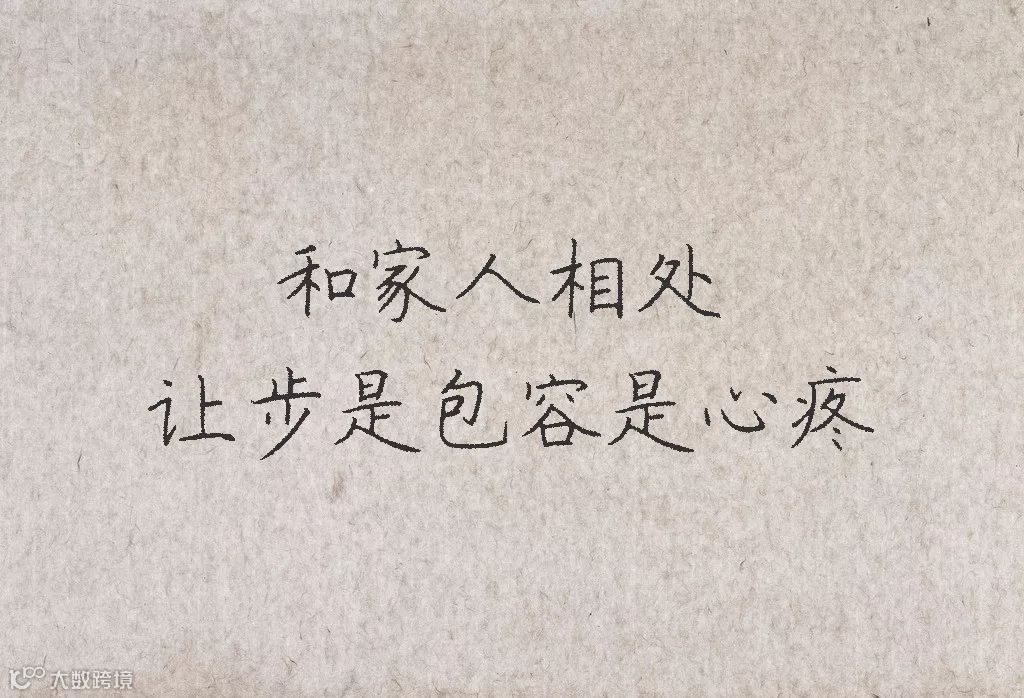 和家人相处
让步是包容是心疼
大数跨境